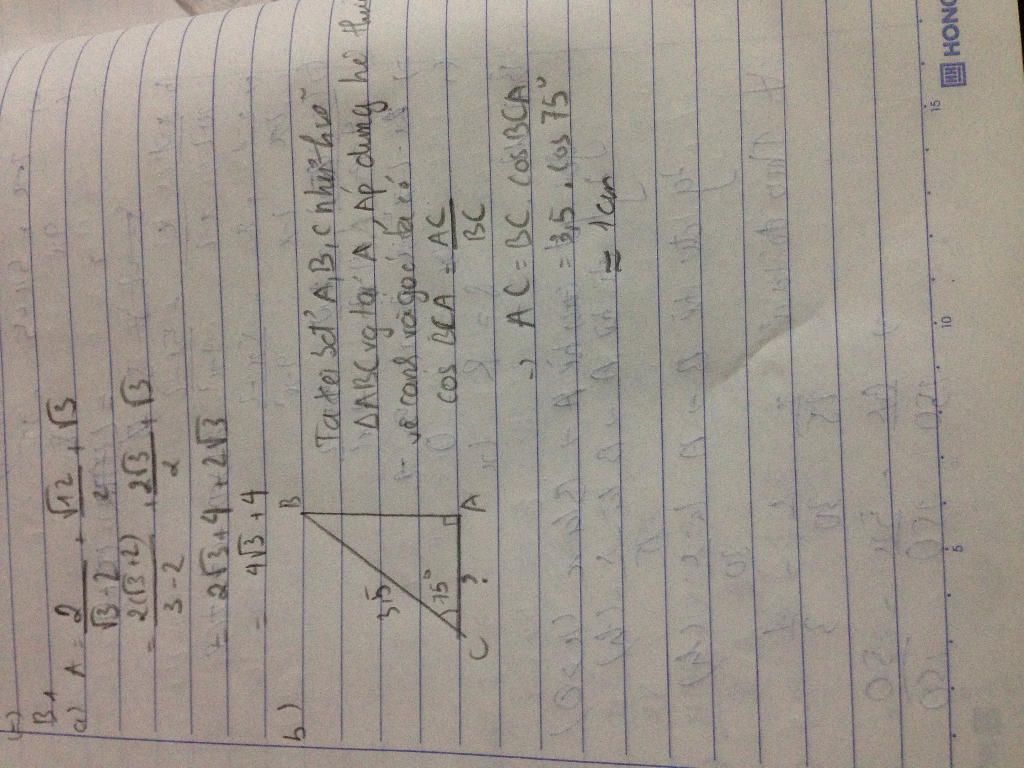 B1
a) A = 2/(√3+2) + √12/2 + √3
= 2(√3+2)/(3-2) + 2√3/2 + √3
= 2√3+4+2√3
= 4√3+4
b)
B
3,5
75°
C
?
A
Ta kẻ sơ A, B, C như hvẽ
ΔABC vg tại A. Áp dụng hệ
về cạnh và góc ta có
cos BCA = AC/BC
⇒ AC = BC. cos BCA
= 3,5. cos 75°
= 1cm
5
10
15
HONG